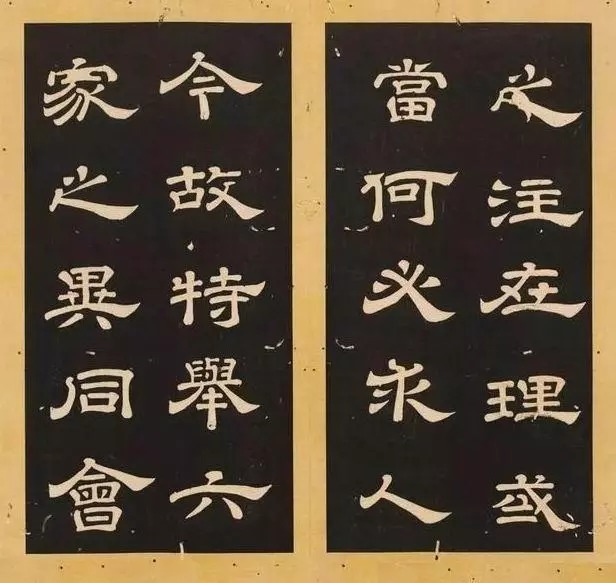 之注在理或
當何必求人
今故特舉六
家之異同會